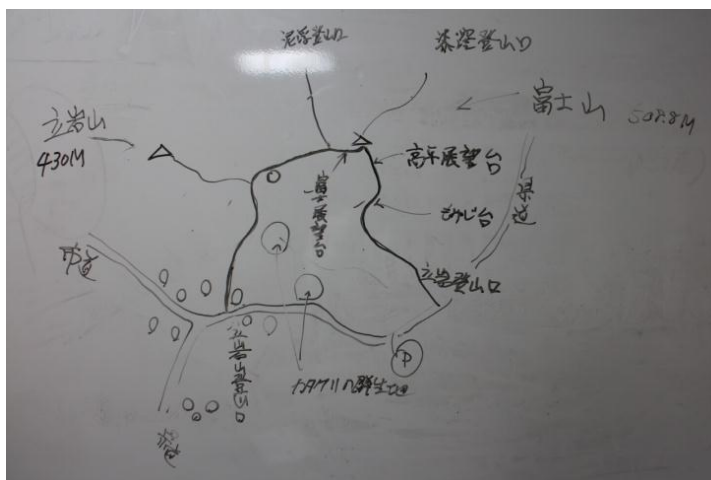 登山口
登山口
富士山
508.8M
立岩山
430M
高平展望台
富士展望台
もみじ台
立岩登山口
市道
P
立岩山登山口
カタクリの群生地